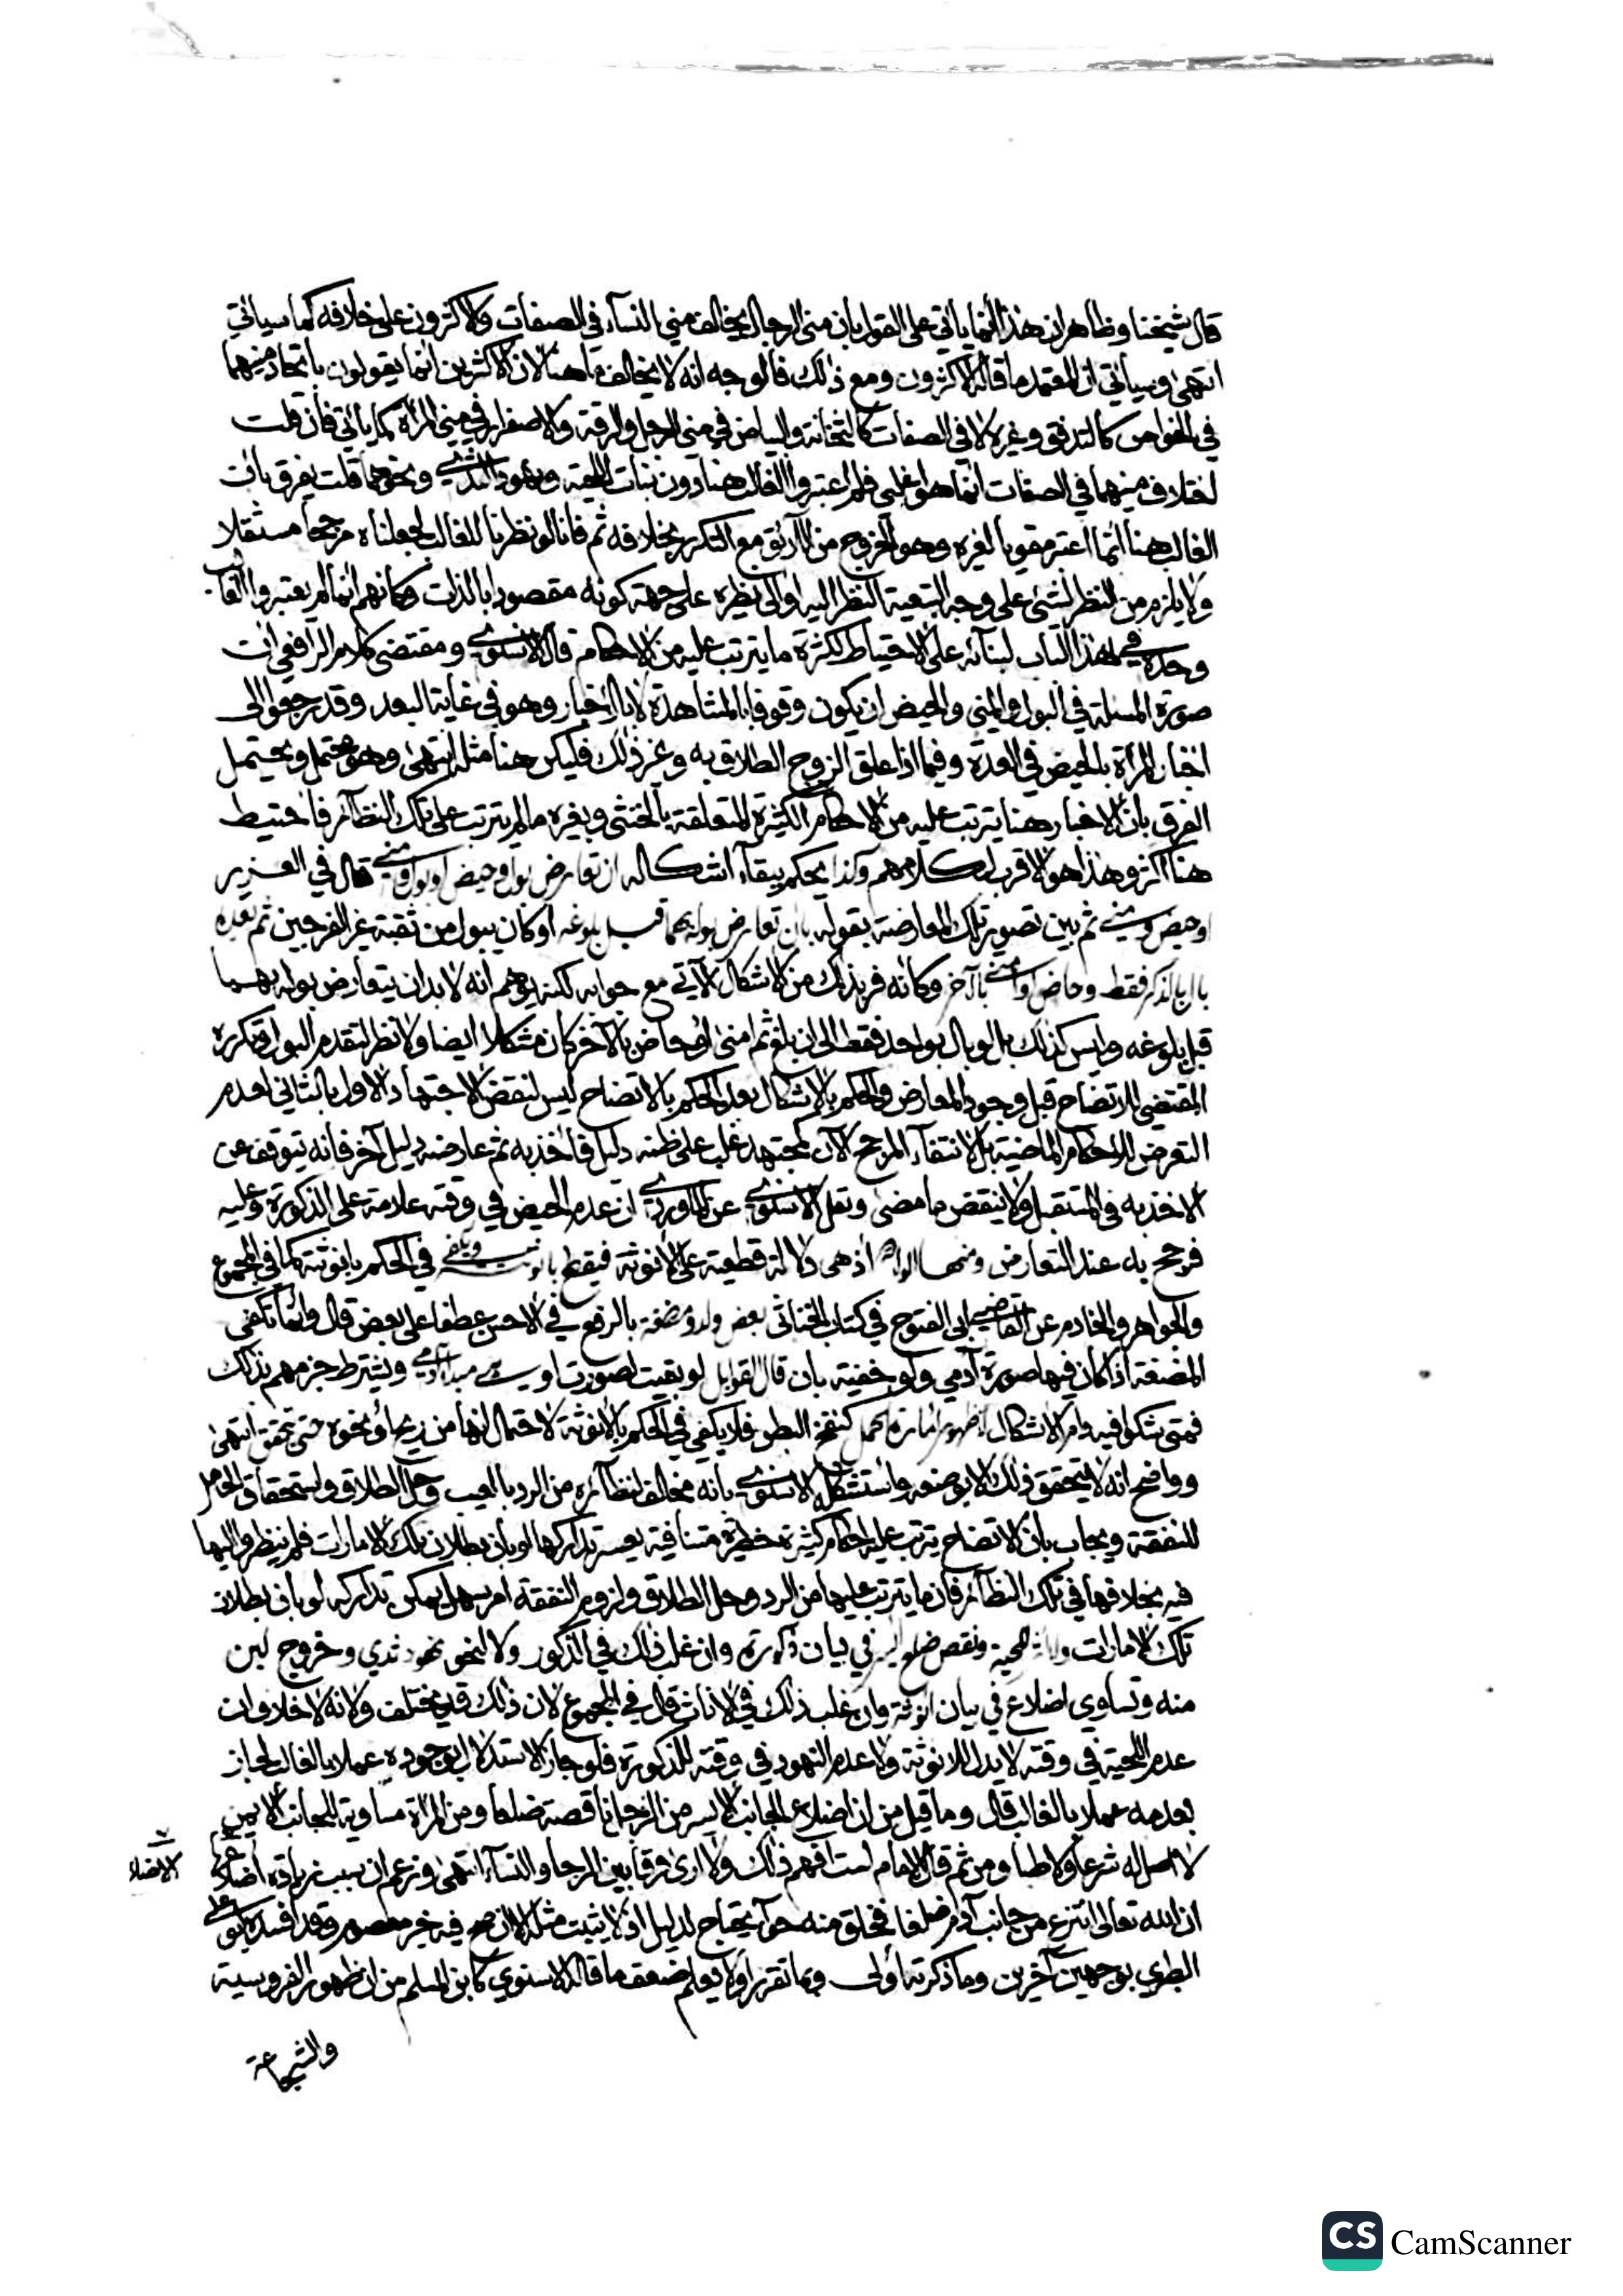 قال شيخنا وظاهر ان هذا انما ياتي على القول بان مني الرجال يخالف مني النسآء في الصفات والاكثرون على خلافه كما سيأتي
انتهى وسيأتي ان المعتمد ما قاله الاكثرون ومع ذلك فالوجه انه لا يخالف ما هنا لان الاكثرين انما يقولون باتحاد منيهما
في الخواص كالتدفق وغيره لا في الصفات كالثخانة والبياض في مني الرجل والرقة والاصفرار في مني المرأة كما يأتي فان قلت
اختلاف منيهما في الصفات انما هو اغلبي فلم اعتبروا الغالب هنا دون نبات اللحية ونهود الثدي ونحوهما قلت يفرق بان
الغالب هنا انما اعتبر مقويا لغيره وهو الخروج من الآلة مع التكرر بخلافه ثم فانا لو نظرنا للغالب لجعلناه مرجحا مستقلا
ولا يلزم من النظر لشئ على وجه التبعية النظر اليه او الى نظيره على جهة كونه مقصودا بالذات وكانهم انما لم يعتبروا الغالب
وحده في هذا الباب لبنائه على الاحتياط لكثرة ما يترتب عليه من الاحكام قال الاسنوي ومقتضى كلام الرافعي ان
صورة المسئلة في البول والمني والحيض ان يكون وقوفا بالمشاهدة لا بالاخبار وهو في غاية البعد وقد رجعوا الى
اخبار المرأة بالحيض في العدة وفيما اذا علق الزوج الطلاق به وغير ذلك فليكن هنا مثله انتهى وهو محتمل ويحتمل
الفرق بان الاخبار هنا يترتب عليه من الاحكام الكثيرة المتعلقة بالخنثى وبغيره ما لم يترتب على تلك النظآئر فاحتيط
هنا اكثر وهذا هو الاقرب لكلامهم وكذا يحكم ببقآء اشكاله ان تعارض بول وحيض او بول ومني قال في العزيز
او حيض ومني ثم بين تصوير تلك المعارضة بقوله بان تعارض بوله بهما قبل بلوغه او كان يبول من ثقبة غير الفرجين ثم بعده
بال بالذكر فقط وحاض او امنى بالآخر وكانه فر بذلك من الاشكال الآتي مع جوابه لكنه يوهم انه لا بد ان يتعارض بوله بهما
قبل بلوغه وليس كذلك بل لو بال بواحد فقط الى ان بلغ ثم امنى او حاض بالآخر كان مشكلا ايضا ولا نظر لتقدم البول وتكرره
المقتضي للاتضاح قبل وجود المعارض والحكم بالاشكال بعد الحكم بالاتضاح ليس لنقض الاجتهاد الاول بالثاني لعدم
التعرض للاحكام الماضية بل لانتفآء المرجح الآن كمجتهد غلب على ظنه دليل فاخذ به ثم عارضه دليل آخر فانه يتوقف عن
الاخذ به في المستقبل ولا ينقض ما مضى ونقل الاسنوي عن الماوردي ان عدم الحيض في وقته علامة على الذكورة وعليه
فرجح به عند التعارض ومنها الولادة اذ هي دلالة قطعية على الانوثة فيقطع بها ويكفي في الحكم بانوثته كما في المجموع
والجواهر والخادم عن القاضي ابي الفتوح في كتاب الخناثى بعض ولد ومضغة بالرفع في الاحسن عطفا على بعض قال وانما تكفي
المضغة اذا كان فيها صورة آدمي ولو خفية بان قال القوابل لو بقيت لصورت او هي مبدأ آدمي ويشترط جزمهم بذلك
فمتى شكوا فيه دام الاشكال اما ظهور امارة الحمل كنفخ البطن فلا يكفي في الحكم بالانوثة لاحتمال انها من ريح او نحوه حتى تحقق انتهى
وواضح انه لا يتحقق ذلك الا بوضعه واستشكله الاسنوي بانه مخالف لنظآئره من الرد بالعيب وحل الطلاق واستحقاق الحامل
للنفقة ويجاب بان الاتضاح يترتب عليه احكام كثيرة خطيرة متنافية يعسر تداركها لو بان بطلان تلك الامارات فلم ينظروا اليها
فيه بخلافها في تلك النظآئر فان ما يترتب عليها من الرد وحل الطلاق ولزوم النفقة امر سهل يمكن تداركه لو بان بطلان
تلك الامارات ولا اثر للحية ونقص ضلع ايسر في بيان ذكورة وان غلب ذلك في الذكور ولا لنحو نهود ثدي وخروج لبن
منه وتساوي اضلاع في بيان انوثة وان غلب ذلك في الاناث قال في المجموع لان ذلك قد يختلف ولانه لا خلاف ان
عدم اللحية في وقته لا يدل للانوثة ولا عدم النهود في وقته للذكورة فلو جاز الاستدلال بوجوده عملا بالغالب لجاز
بعدمه عملا بالغالب قال وما قيل من ان اضلاع الجانب الايسر من الرجل ناقصة ضلعا ومن المرأة مساوية للجانب الايمن
لا اصل له شرعا ولا طبا ومن ثم قال الامام لست افهم ذلك ولا ارى فرقا بين الرجال والنسآء انتهى وزعم ان سبب زيادة اضلاع
الاضلاع
ان الله تعالى انتزع من جانب آدم ضلعا فخلق منه حوآء يحتاج لدليل اذ لا يثبت مثله الا ان صح فيه خبر معصوم وقد افسده ابو علي
الطبري بوجهين آخرين وما ذكرته اولى وبما تقرر اولا يعلم ضعف ما قاله الاسنوي كابن المسلم من ان ظهور الفروسية
والشجاعة
CS CamScanner